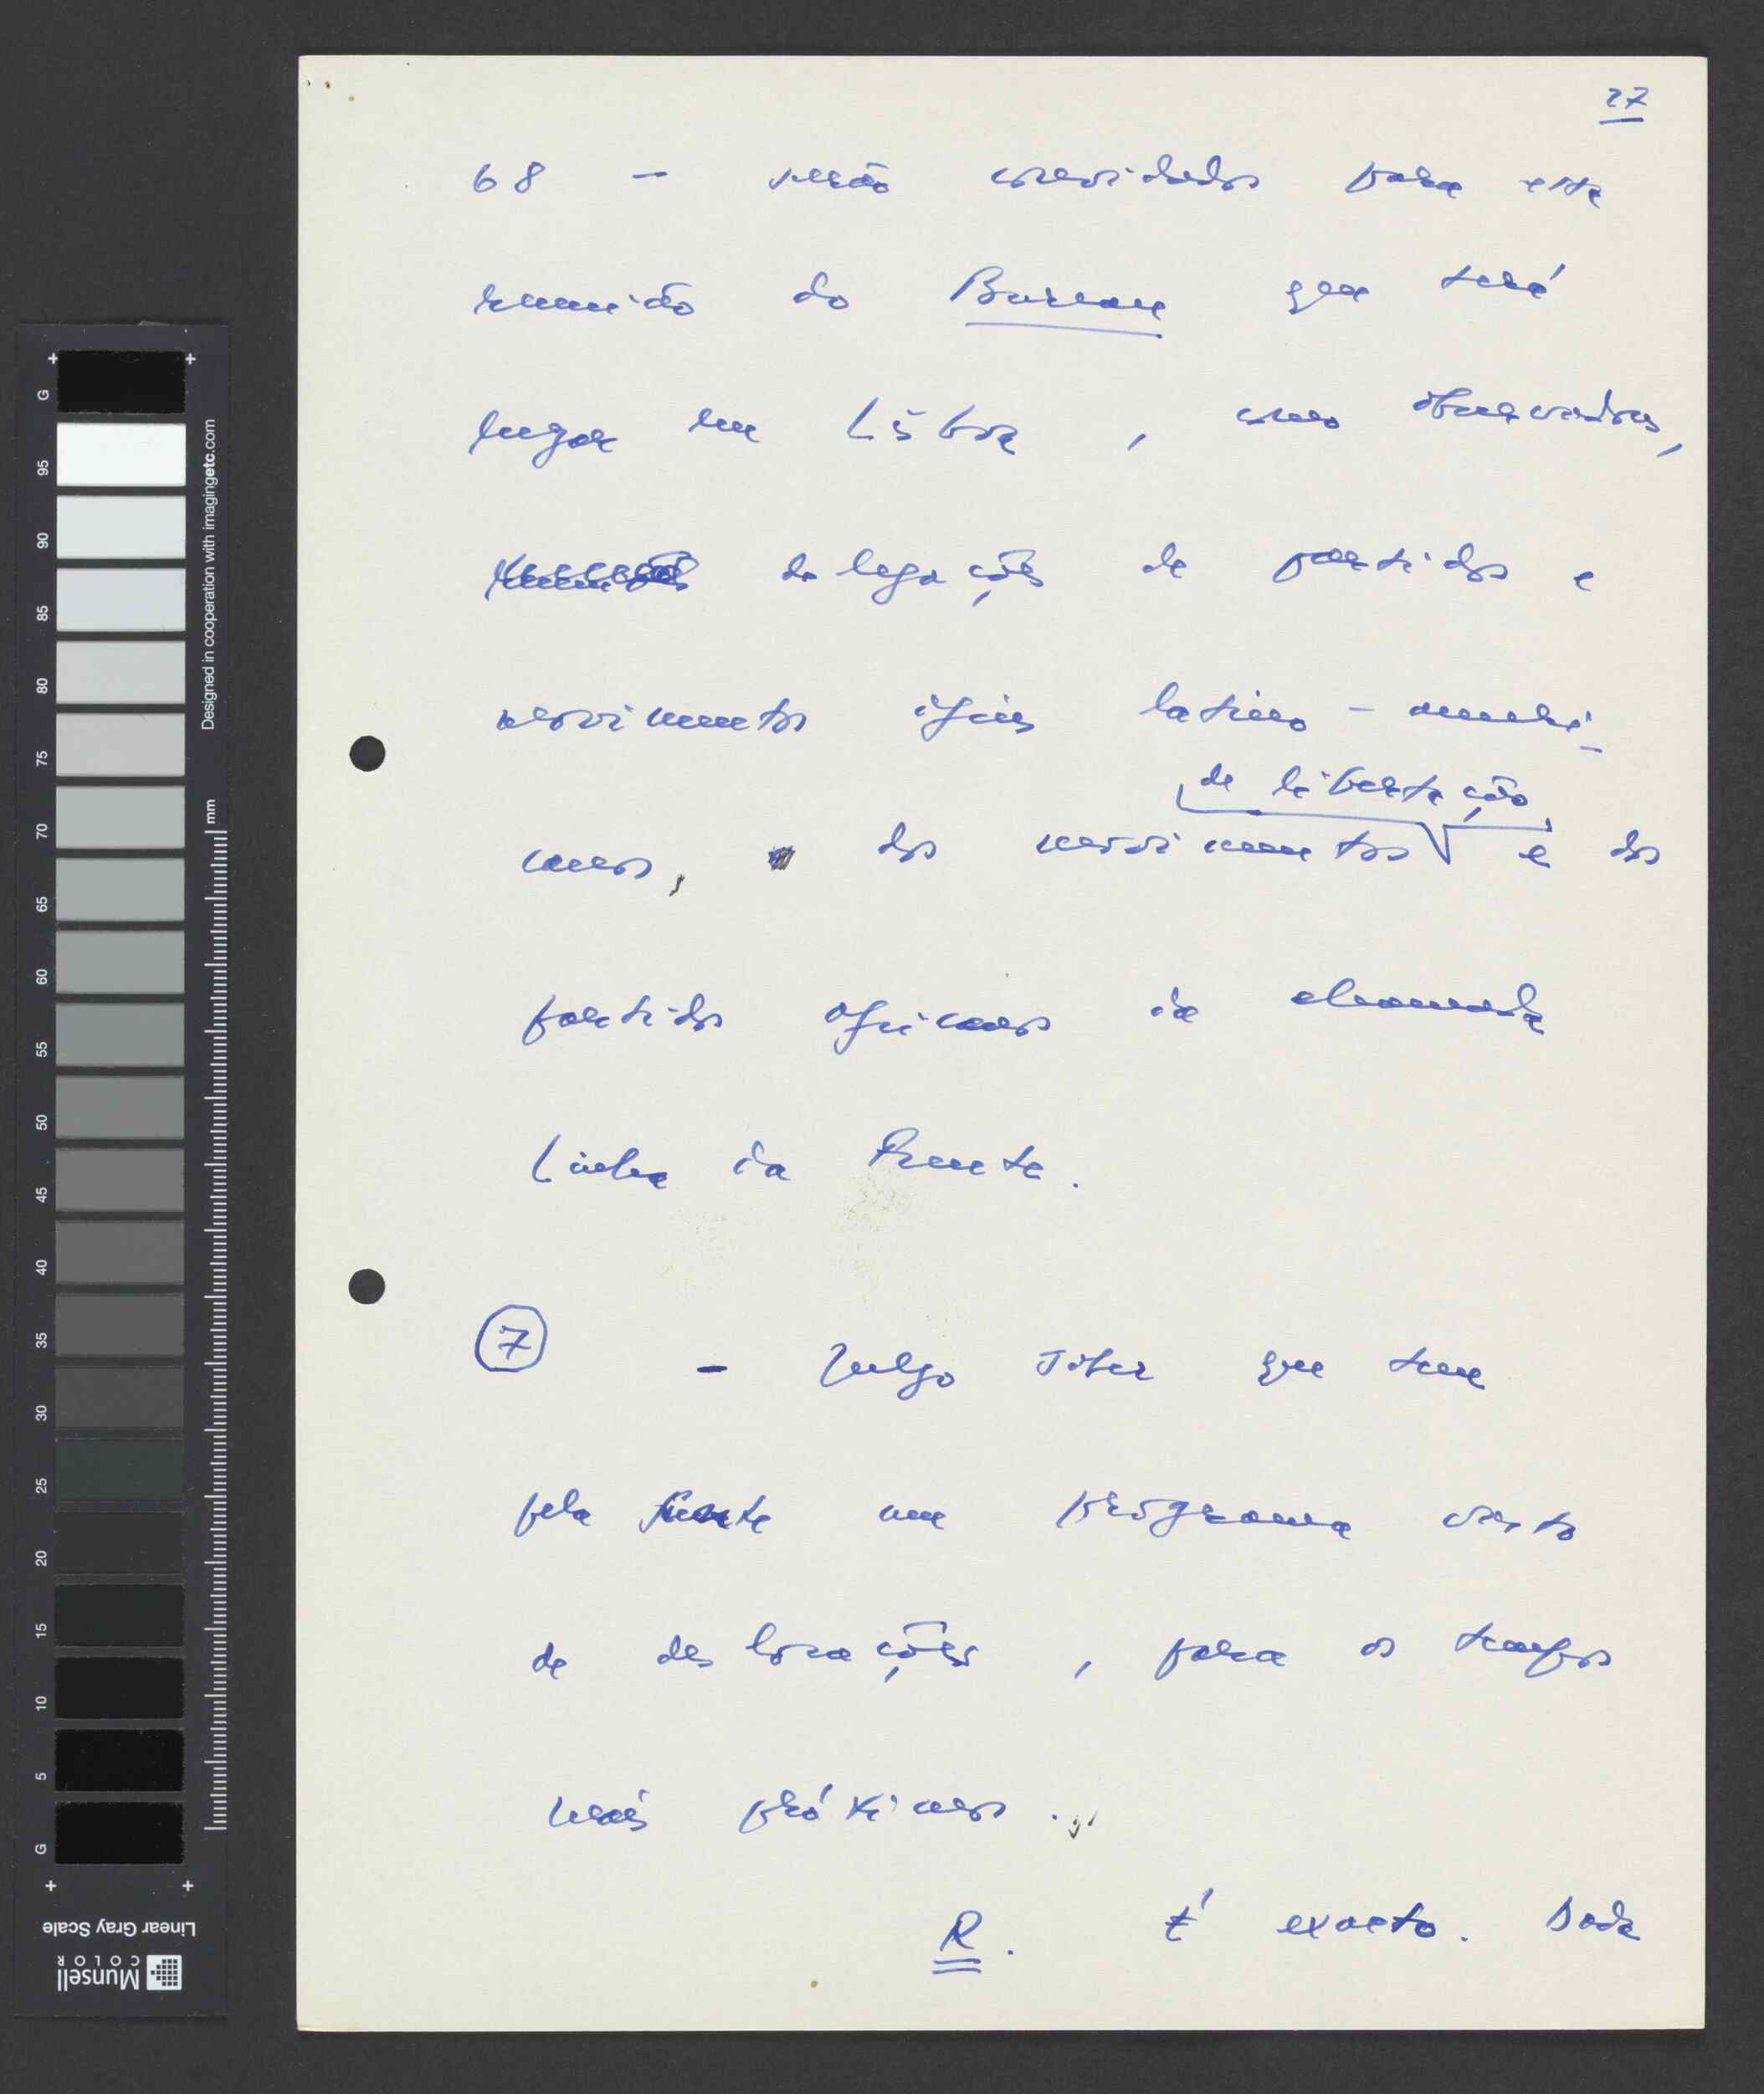 27
68 — serão convidados para esta
reunião do Bureau que terá
lugar em Lisboa, como observadores,
delegações de partidos e
movimentos afins latino-ameri-
de libertação
canos, dos movimentos e dos
partidos africanos da chamada
Linha da Frente.
7 — Julgo saber que tem
pela frente um programa vasto
de deslocações, para os tempos
mais próximos...
R. É exacto. Dada
G
95
90
85
80
75
70
65
60
55
50
45
40
35
30
25
20
15
10
5
G
mm
Designed in cooperation with imagingetc.com
Linear Gray Scale
Munsell
COLOR